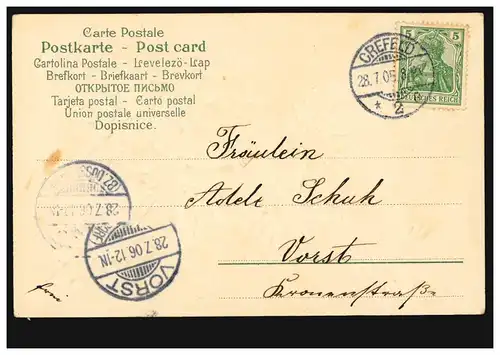 Carte Postale
Postkarte - Post card
Cartolina Postale - Levelező-Lap
Brefkort - Briefkaart - Brevkort
ОТКРЫТОЕ ПИСЬМО
Tarjeta postal - Cartó postal
Union postale universelle
Dopisnice.
5 5
DEUTSCHES REICH
CREFELD
* 2
Fräulein
Adele Schuh
Vorst
Kronenstraße
28.7.06
28.7.06.12-1N
VORST